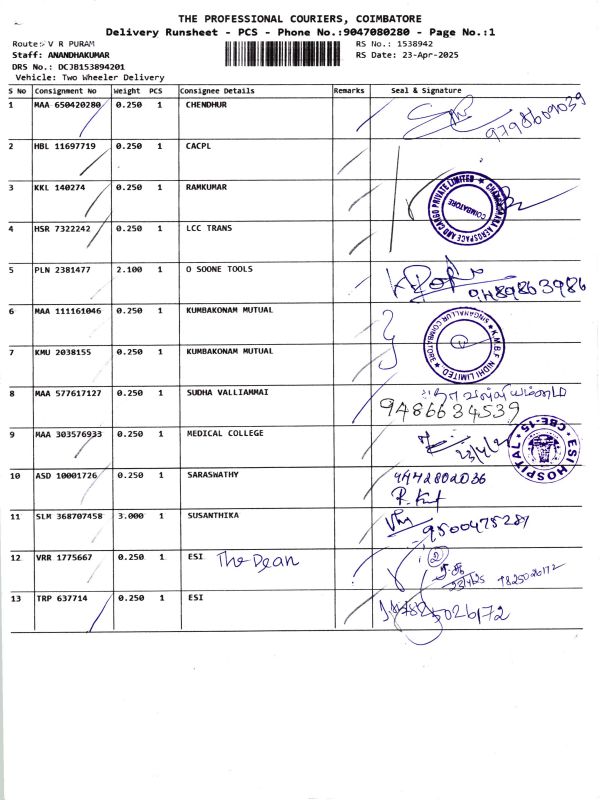 THE PROFESSIONAL COURIERS, COIMBATORE
Delivery Runsheet - PCS - Phone No.:9047080280 - Page No.:1
Route: V R PURAM RS No.: 1538942
Staff: ANANDHAKUMAR RS Date: 23-Apr-2025
DRS No.: DCJB153894201
Vehicle: Two Wheeler Delivery
S No Consignment No Weight PCS Consignee Details Remarks Seal & Signature
1 MAA 650420280 0.250 1 CHENDHUR 9798609039
2 HBL 11697719 0.250 1 CACPL
3 KKL 140274 0.250 1 RAMKUMAR
COIMBATORE
4 HSR 7322242 0.250 1 LCC TRANS
5 PLN 2381477 2.100 1 O SOONE TOOLS 9489863986
6 MAA 111161046 0.250 1 KUMBAKONAM MUTUAL
K.M.B.F NIDHI LIMITED. SINGANALLUR COIMBATORE
7 KMU 2038155 0.250 1 KUMBAKONAM MUTUAL
8 MAA 577617127 0.250 1 SUDHA VALLIAMMAI
9486634539
9 MAA 303576933 0.250 1 MEDICAL COLLEGE 23/4/2
ESI HOSPITAL CBE-15
10 ASD 10001726 0.250 1 SARASWATHY 9442802036
11 SLM 368707458 3.000 1 SUSANTHIKA 9500475287
12 VRR 1775667 0.250 1 ESI The Dean 2
23/4/25 9825026172
13 TRP 637714 0.250 1 ESI